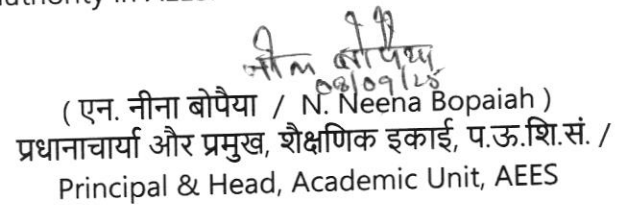 authority in AEES.
नीना बोपैया
08/09/25
( एन. नीना बोपैया / N. Neena Bopaiah )
प्रधानाचार्या और प्रमुख, शैक्षणिक इकाई, प.ऊ.शि.सं. /
Principal & Head, Academic Unit, AEES